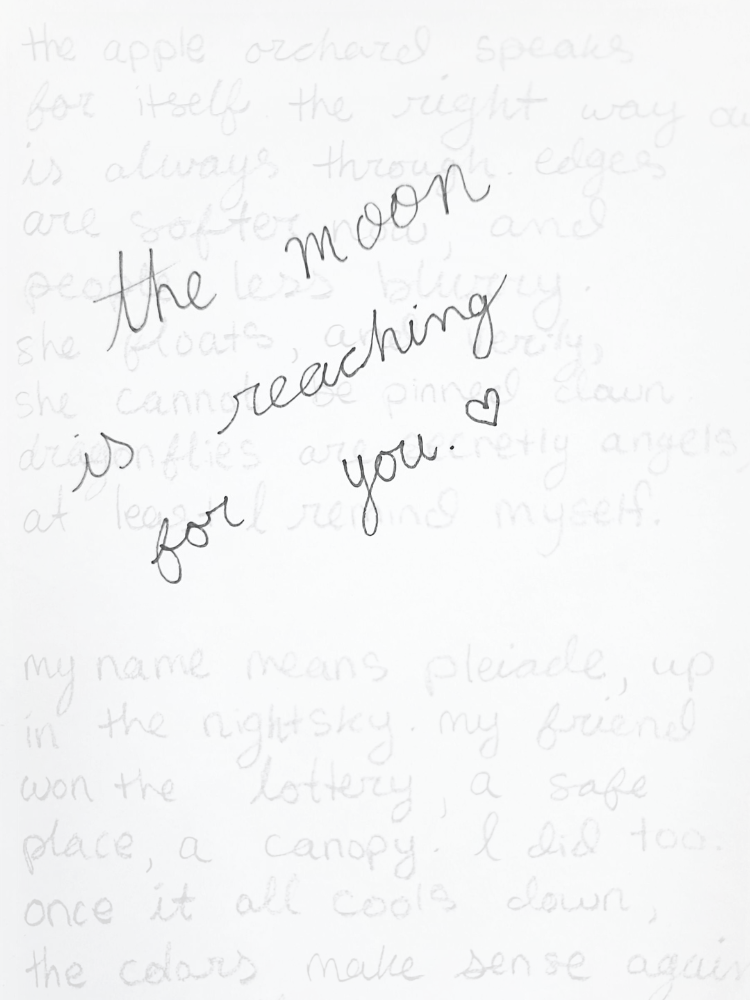 the apple orchard speaks
for itself. the right way ou
is always through. edges
are softer now, and
people less blurry.
she floats, and verily,
she cannot be pinned down.
dragonflies are secretly angels,
at least I remind myself.
the moon
is reaching
for you. ♡
my name means pleiade, up
in the nightsky. my friend
won the lottery, a safe
place, a canopy. I did too.
once it all cools down,
the colors make sense again